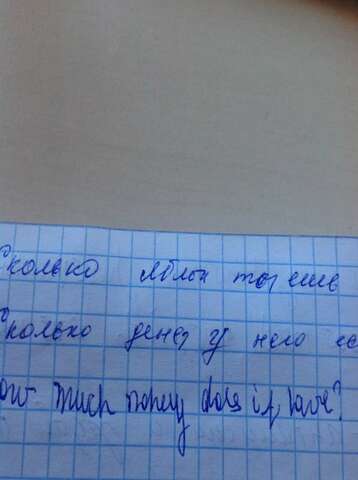 Сколько яблок ты
Сколько денег у него
How much money does it have?